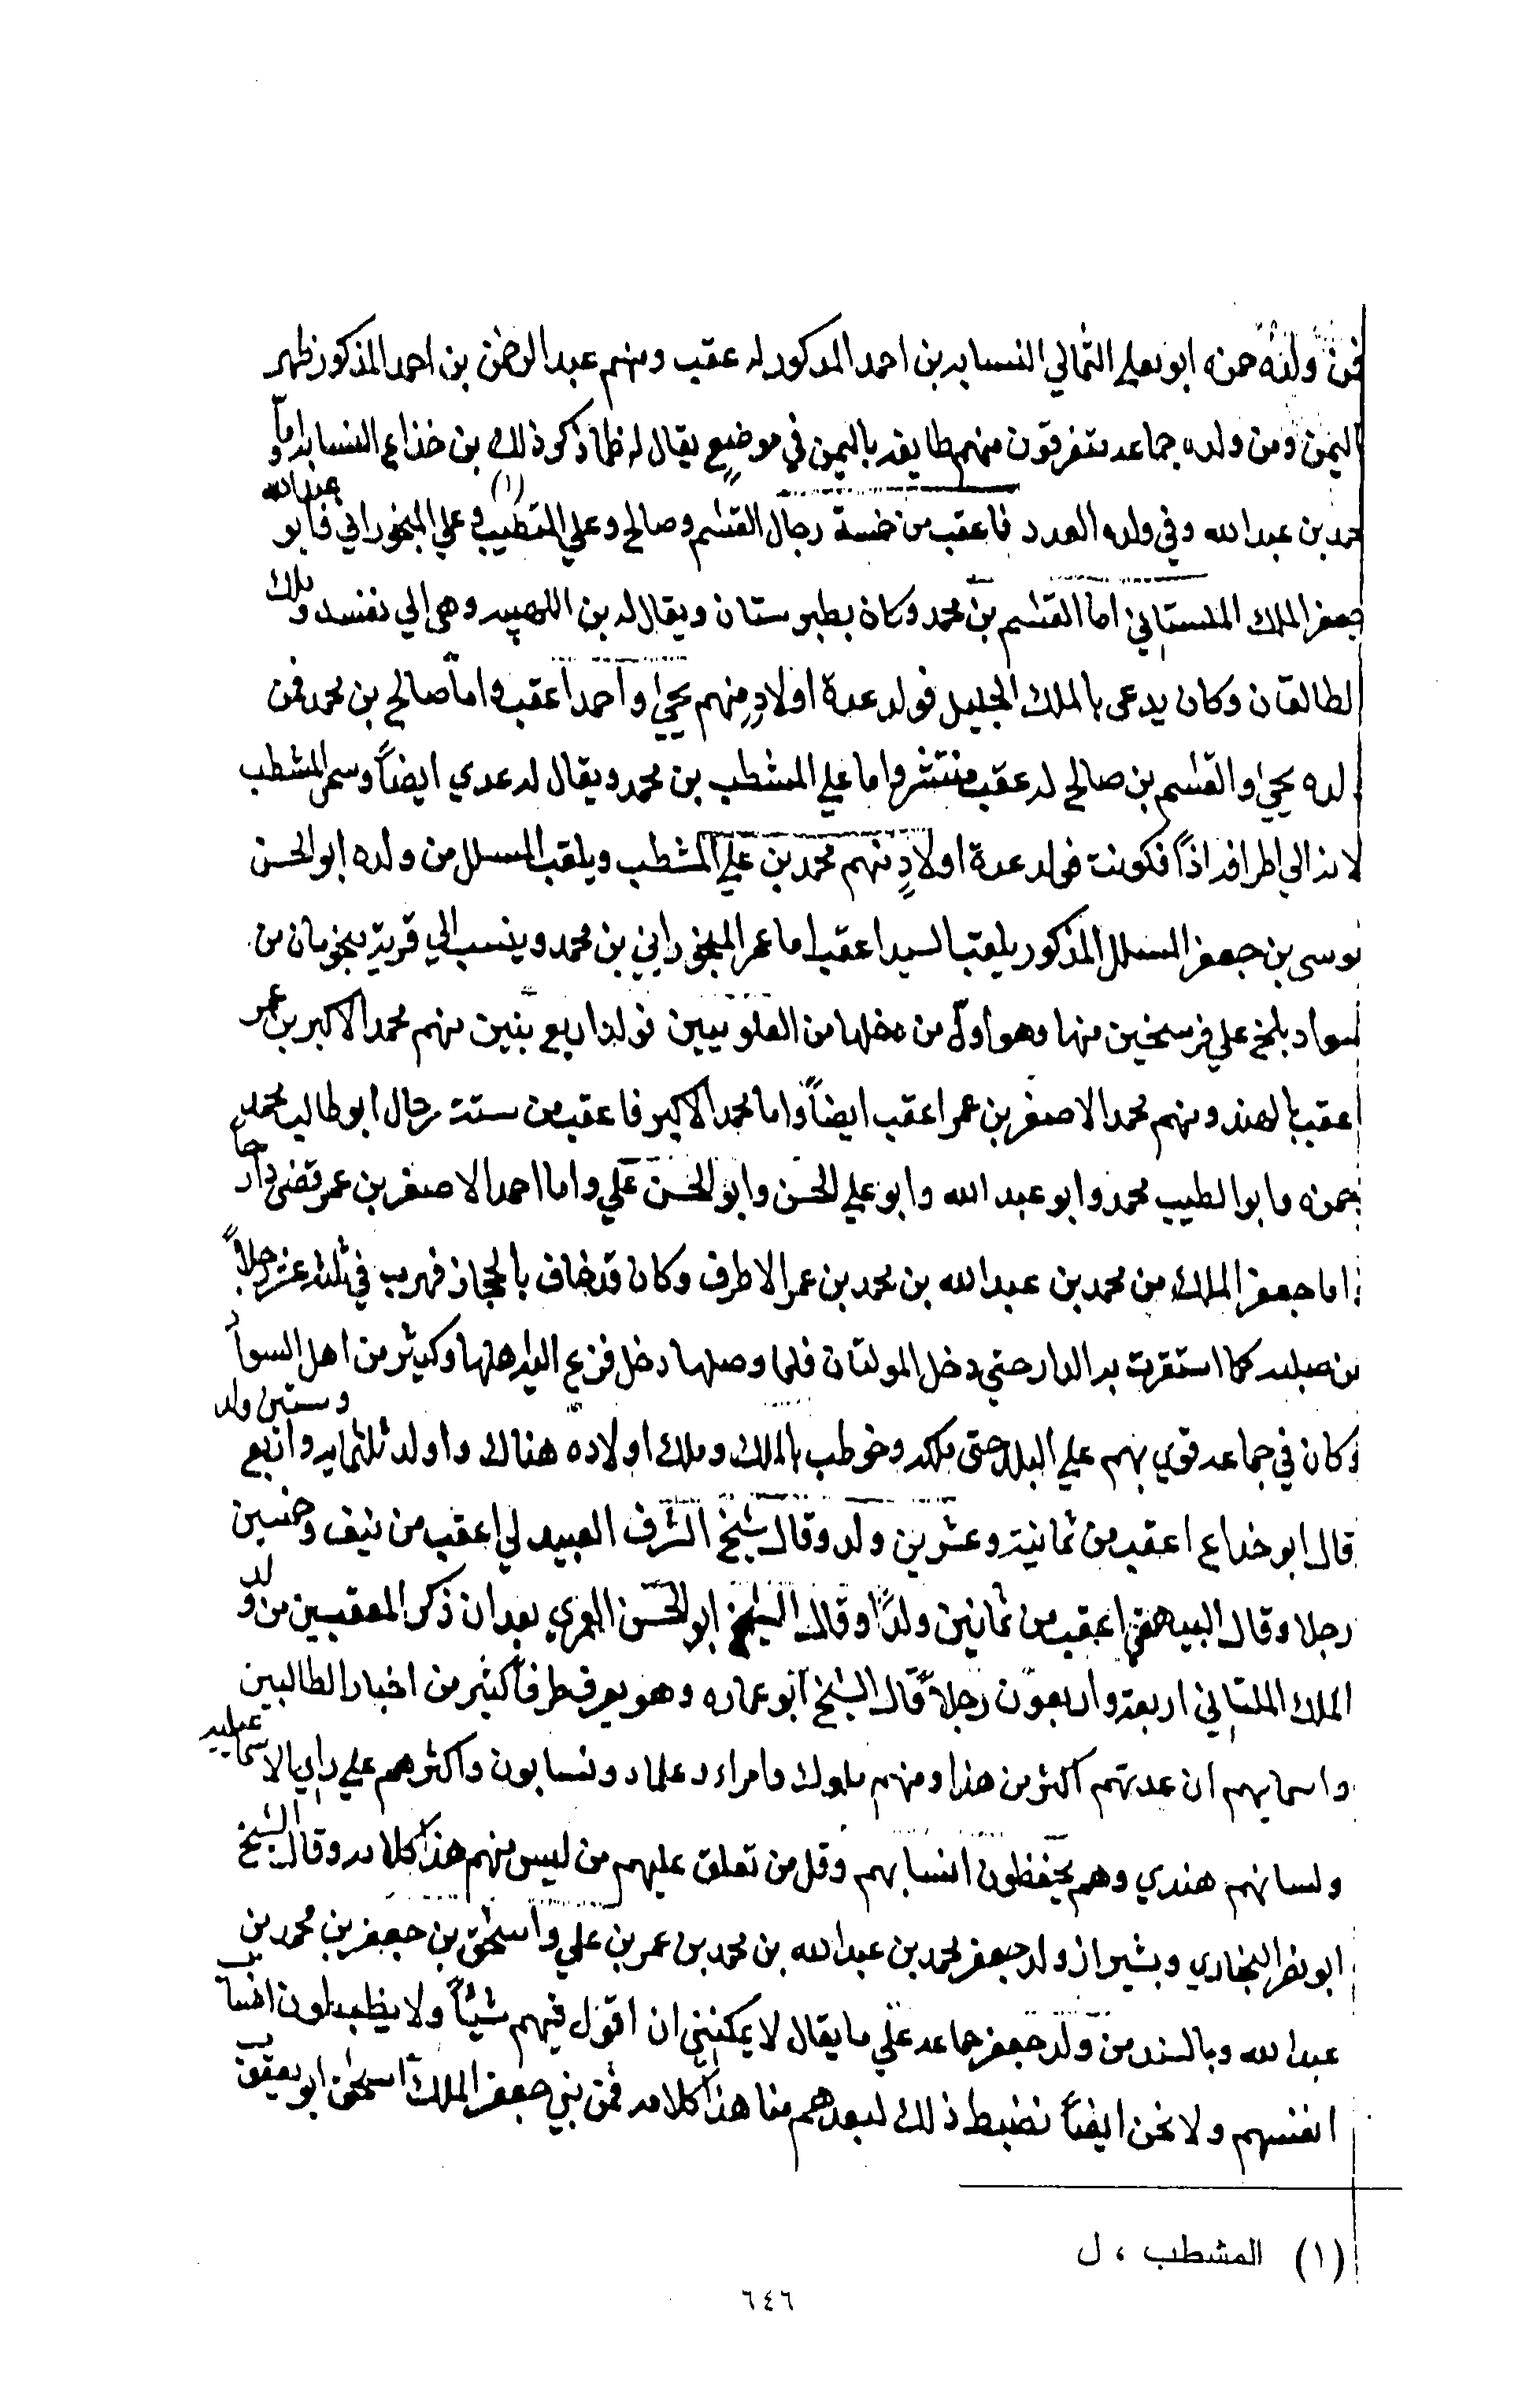 فمن ولده حمزه ابو يعلي الثمالي النسابه بن احمد المذكور له عقب ومنهم عبد الرحمن بن احمد المذكور ظهر
اليمن ومن ولده جماعه متفرقون منهم طايفه باليمن في موضع يقال له ظما ذكر ذلك بن خذاع النسابه واما
محمد بن عبد الله وفي ولده العدد فاعقب من خمسة رجال القسم وصالح وعلي المتطيب (١) وعلي المنجوراني وابو عبد الله
جعفر الملك الملتاني اما القسم بن محمد وكان بطبرستان ويقال له بن اللهبيه وهى الي نفسه وملك
لطالقان وكان يدعى بالملك الجليل فولد عدة اولاد منهم يحيى واحمد اعقب واما صالح بن محمد فمن
لده يحيى والقسم بن صالح له عقب منتشر واما علي المشطب بن محمد ويقال له عدي ايضاً وسمى المشطب
لانه الي اطرافه اذاً فكونت فولد عدة اولادٍ منهم محمد بن علي المشطب ويلقب المسلل من ولده ابو الحسن
موسى بن جعفر المسلل المذكور يلقب السيد اعقب اما عمر المنجوراني بن محمد وينسب الي قرية بنجومان من
سواد بلخ علي فرسخين منها وهو اول من دخلها من العلويين فولد اربع بنين منهم محمد الاكبر بن عمر
اعقب بالهند ومنهم محمد الاصغر بن عمر اعقب ايضاً واما محمد الاكبر فاعقب من ستة رجال ابو طالب محمد
حمزه وابو الطيب محمد وابو عبد الله وابو علي الحسن وابو الحسن علي واما احمد الاصغر بن عمر
اما جعفر الملك من محمد بن عبد الله بن محمد بن عمر الاطرف وكان قد خاف بالحجاز فهرب في ثلثه عشر رجلاً
من صلبه فما استقرت به الدار حتي دخل المولتان فلما وصلها دخل فزع اليه اهلها وكثير من اهل السواد
وكان في جماعه قوي بهم علي البلد حتى ملكه وخوطب بالملك وملك اولاده هناك واولد ثلثمايه واربع وستين ولد
قال ابو خداع اعقب من ثمانية وعشرين ولد وقال شيخ الشرف العبيدلي اعقب من نيف وخمسين
رجلا وقال البيهقي اعقب من ثمانين ولدًا وقال الشيخ ابو الحسن العمري بعد ان ذكر المعقبين من ولد
الملك الملتاني اربعة واربعون رجلاً قال الشيخ ابو عماره وهو يعرف طرفاً كثير من اخبار الطالبين
واسمايهم ان عدتهم اكثر من هذا ومنهم ملوك وامراء وعلماء ونسابون واكثرهم علي راي الاسماعيليه
ولسانهم هندي وهم يحفظون انسابهم وقل من تعلق عليهم من ليس منهم هذا كلامه وقال الشيخ
ابو نصر البخاري وبشيراز ولد جعفر محمد بن عبد الله بن محمد بن عمر بن علي واسحق بن جعفر بن محمد بن
عبد الله وبالسند من ولد جعفر جماعه علي ما يقال لا يمكنني ان اقول فيهم شيئاً ولا يظبطون انساب
انفسهم ولا نحن ايضاً نضبط ذلك لبعدهم منا هذا كلامه فمن بني جعفر الملك اسحق ابو يعقوب
(١) المشطب ، ل
٦٤٦